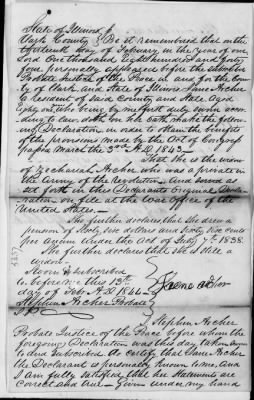 State of Illinois }
Clark County } Be it remembered that on the
thirteenth day of February in the year of our
Lord One thousand Eight hundred and forty
four personally appeared before the subscriber
Probate Justice of the Peace in and for the County
of Clark and State of Illinois Jane Archer
a resident of said County and State aged
Sixty being by me first duly sworn
according to law doth on her oath make the follow-
ing Declaration, in order to obtain the benefits
of the provisions made by the Act of Congress
passed March the 3rd A.D. 1843 -
That she is the widow
of Zechariah Archer who was a private in
the Army of the Revolution, and served as
set forth in this Declarants Original Decla-
ration on file at the War Office of the
United States. -
She further declares that she drew a
pension of Sixty Six dollars and Sixty Six cents
per annum Under the Act of July 7th 1838.
She further declares that she is still a
widow.
Sworn & Subscribed
to before me this 13th
day of Feby A.D. 1844
Jane Archer
Stephen Archer Probate
J.P.
I Stephen Archer
Probate Justice of the Peace before whom
the foregoing Declaration was this day taken
and Subscribed do Certify that Jane Archer
the Declarant is personally known to me, and
I am fully satisfied that her Statements are
Correct and true - given under my hand